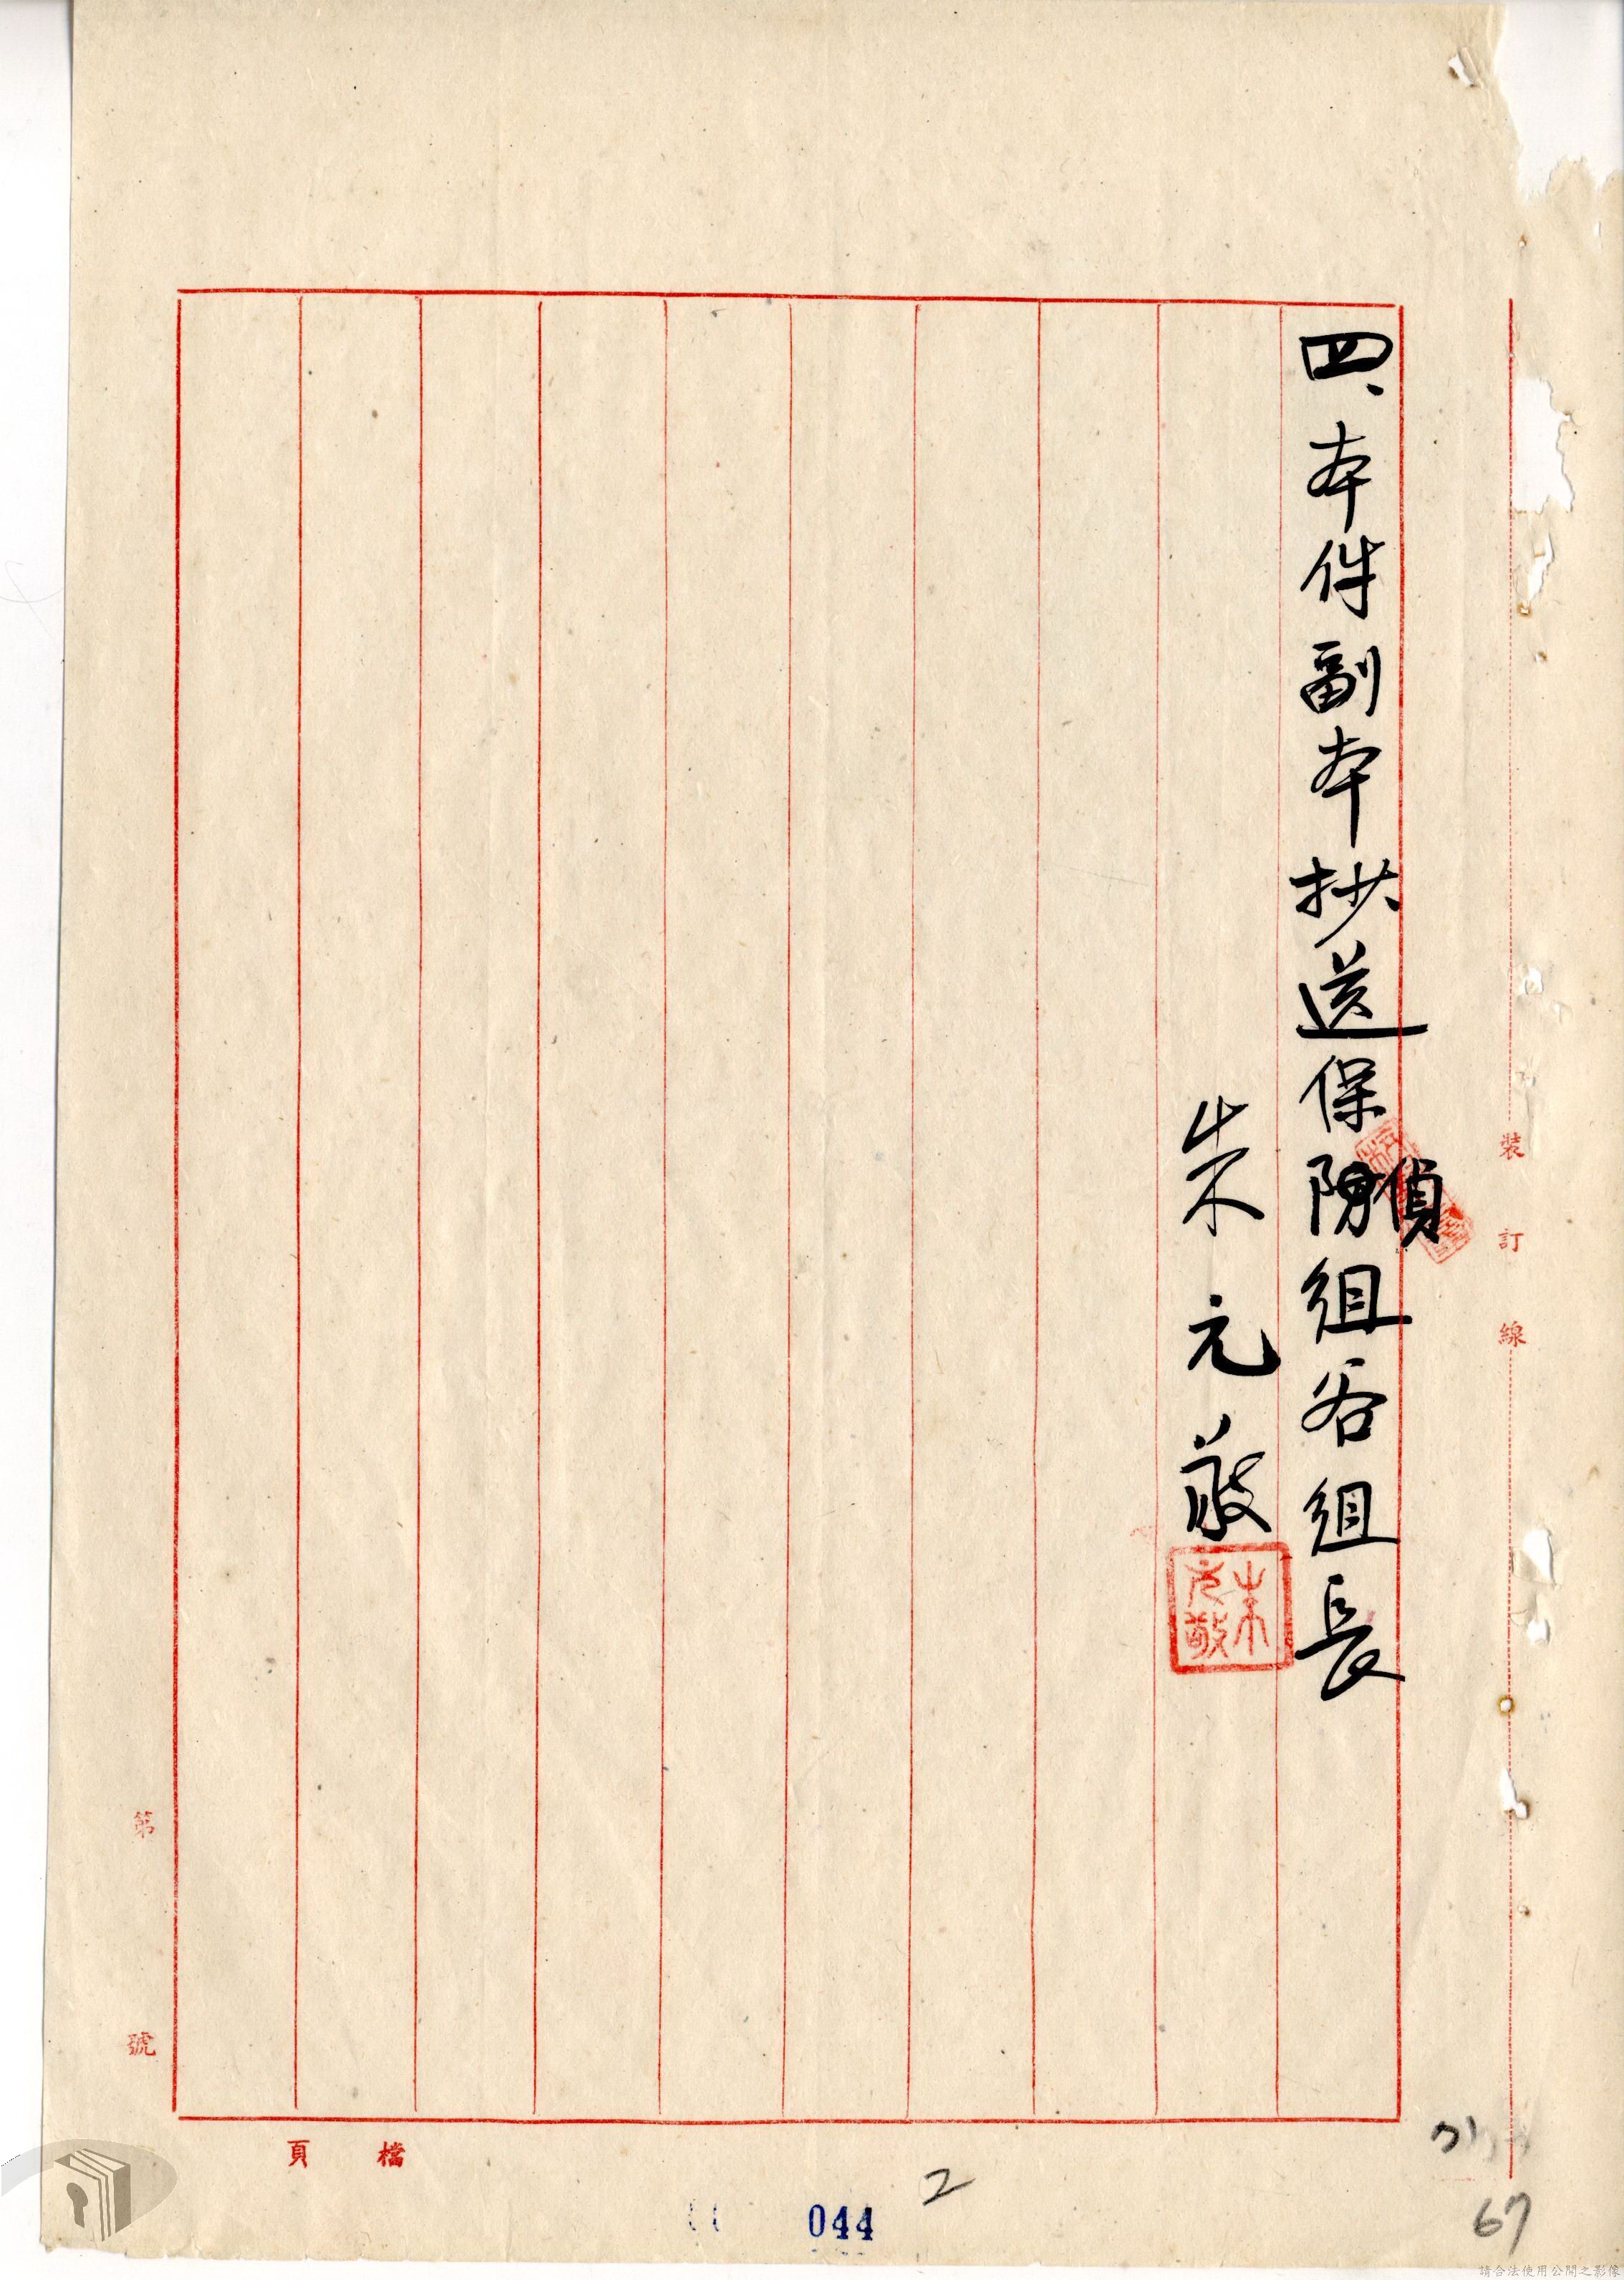 四、本件副本抄送保防偵組谷組長
朱元敬
朱元敬
裝訂線
第 號
檔 頁
2
044
71
67
請合法使用公開之影像